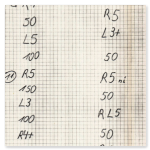 50
L5
100
R5
150
L3
100
R4+
R5
L3+
100
R5 ni
50
RL5
50